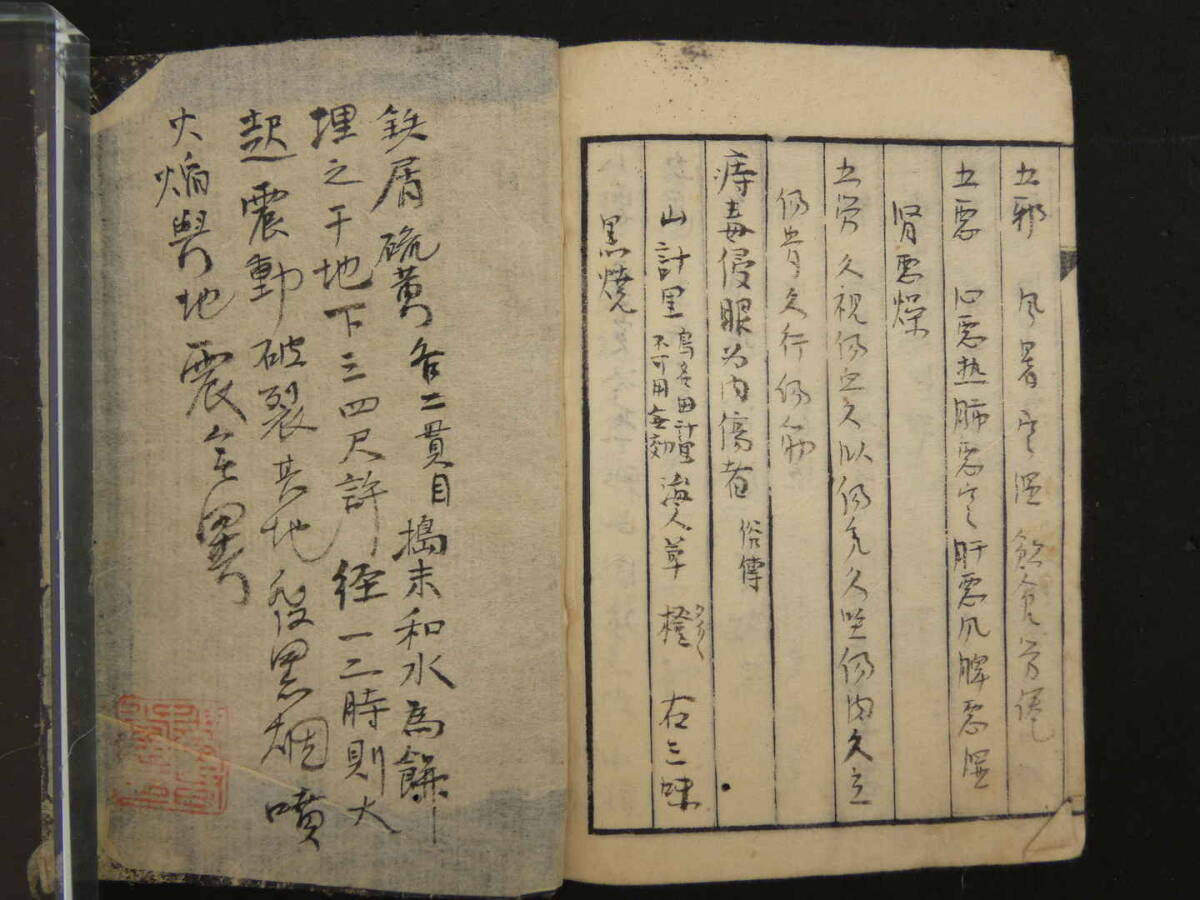 五邪 風暑寒湿飲食労倦
五悪 心悪热肺悪寒肝悪風脾悪湿
肾悪燥
五労久視傷血久臥傷気久坐傷肉久立
傷骨久行傷筋
痔毒侵眼为内傷者 俗傳
山計里 鳥名田計里
不可用無効 海人草 橙 右三味
黒焼
鉄屑硫黄各二貫目搗末和水為餅
埋之于地下三四尺許径一二時則大
起震動破裂其地發黒烟噴
火焔與地震無異